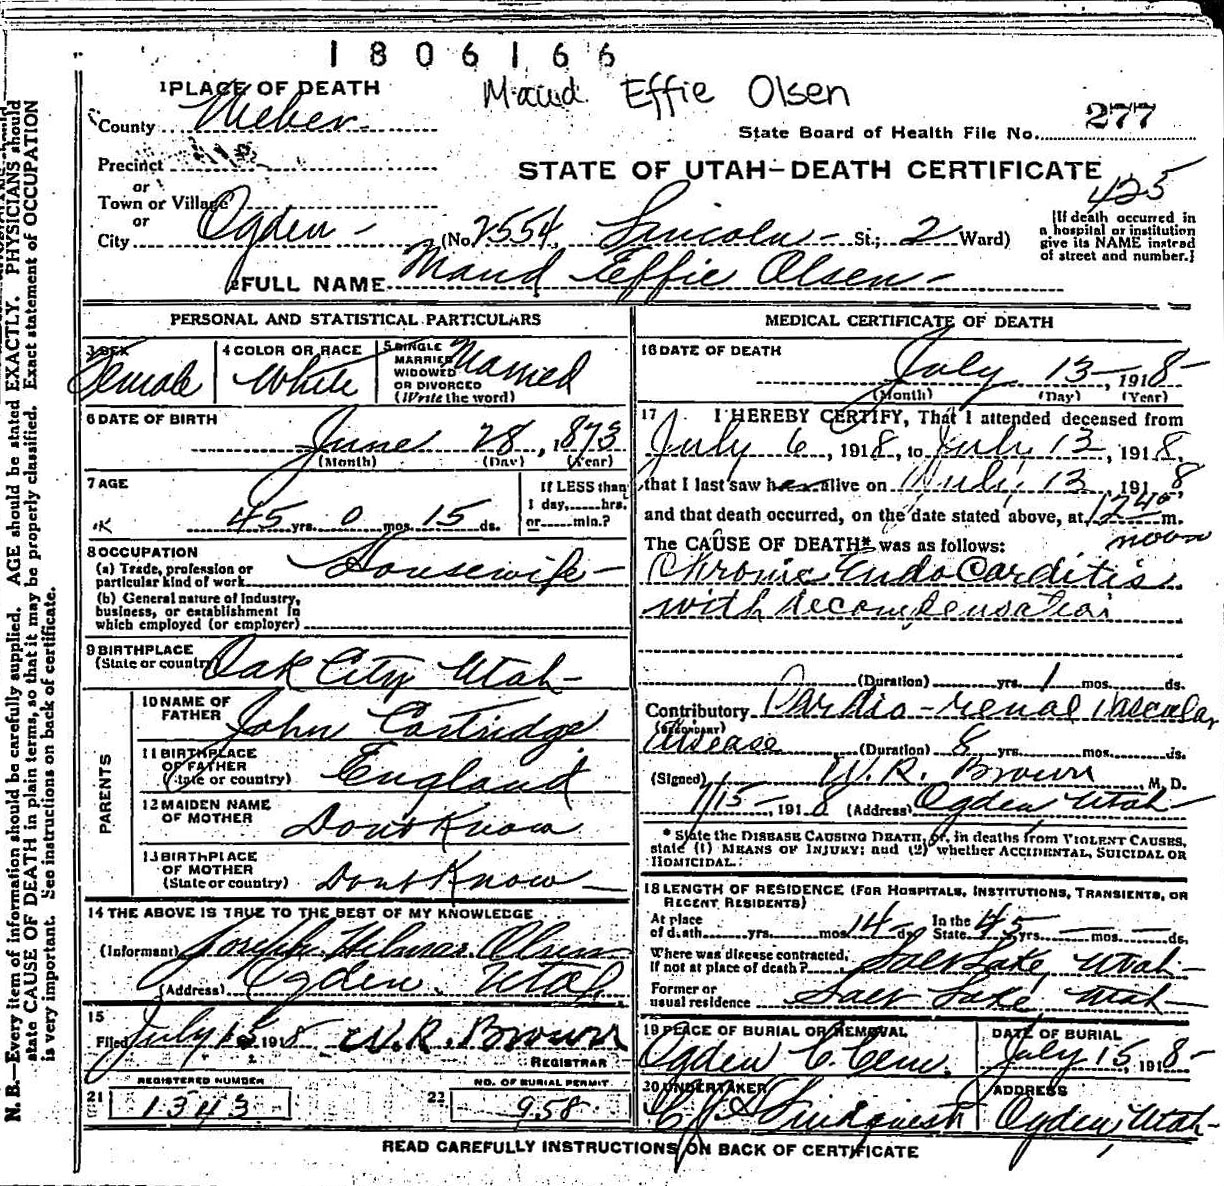 1806166
Maud Effie Olsen
1 PLACE OF DEATH
County Weber
State Board of Health File No. 277
Precinct
STATE OF UTAH—DEATH CERTIFICATE
425
or
Town or Village
or
City Ogden (No. 2554 Lincoln St.; 2 Ward)
[If death occurred in
a hospital or institution
give its NAME instead
of street and number.]
2 FULL NAME Maud Effie Olsen
PERSONAL AND STATISTICAL PARTICULARS
3 SEX Female
4 COLOR OR RACE White
5 SINGLE
MARRIED
WIDOWED
OR DIVORCED
(Write the word) Married
6 DATE OF BIRTH
June 28, 1873
(Month) (Day) (Year)
7 AGE
45 yrs. 0 mos. 15 ds.
If LESS than
1 day, hrs.
or min.?
8 OCCUPATION
(a) Trade, profession or
particular kind of work Housewife
(b) General nature of Industry,
business, or establishment in
which employed (or employer)
9 BIRTHPLACE
(State or country) Oak City Utah
PARENTS
10 NAME OF
FATHER John Cartridge
11 BIRTHPLACE
OF FATHER
(State or country) England
12 MAIDEN NAME
OF MOTHER Dont Know
13 BIRTHPLACE
OF MOTHER
(State or country) Dont Know
14 THE ABOVE IS TRUE TO THE BEST OF MY KNOWLEDGE
(Informant) Joseph Hilmar Olsen
(Address) Ogden Utah
15
Filed July 15 1918 W. R. Brown
REGISTRAR
REGISTERED NUMBER
21 1343
NO. OF BURIAL PERMIT
22 958
MEDICAL CERTIFICATE OF DEATH
16 DATE OF DEATH
July 13, 1918
(Month) (Day) (Year)
17 I HEREBY CERTIFY, That I attended deceased from
July 6, 1918, to July 13, 1918,
that I last saw her alive on July 13, 1918
and that death occurred, on the date stated above, at 1240 m.
noon
The CAUSE OF DEATH* was as follows:
Chronic Endo Carditis
with decompensation
(Duration) yrs. 1 mos. ds.
Contributory Cardio-renal vascular
(SECONDARY)
disease (Duration) 8 yrs. mos. ds.
(Signed) W. R. Brown, M. D.
7/15 1918 (Address) Ogden Utah
* State the DISEASE CAUSING DEATH, or, in deaths from VIOLENT CAUSES,
state (1) MEANS OF INJURY; and (2) whether ACCIDENTAL, SUICIDAL OR
HOMICIDAL.
18 LENGTH OF RESIDENCE (FOR HOSPITALS, INSTITUTIONS, TRANSIENTS, OR
RECENT RESIDENTS)
At place
of death yrs. mos. 14 ds.
In the
State 45 yrs. mos. ds.
Where was disease contracted,
If not at place of death? Salt Lake, Utah
Former or
usual residence Salt Lake Utah
19 PLACE OF BURIAL OR REMOVAL
Ogden C. Cem.
DATE OF BURIAL
July 15, 1918
20 UNDERTAKER
Lindquist
ADDRESS
Ogden, Utah
READ CAREFULLY INSTRUCTIONS ON BACK OF CERTIFICATE
N. B.—Every item of information should be carefully supplied. AGE should be stated EXACTLY. PHYSICIANS should
state CAUSE OF DEATH in plain terms, so that it may be properly classified. Exact statement of OCCUPATION
is very important. See instructions on back of certificate.